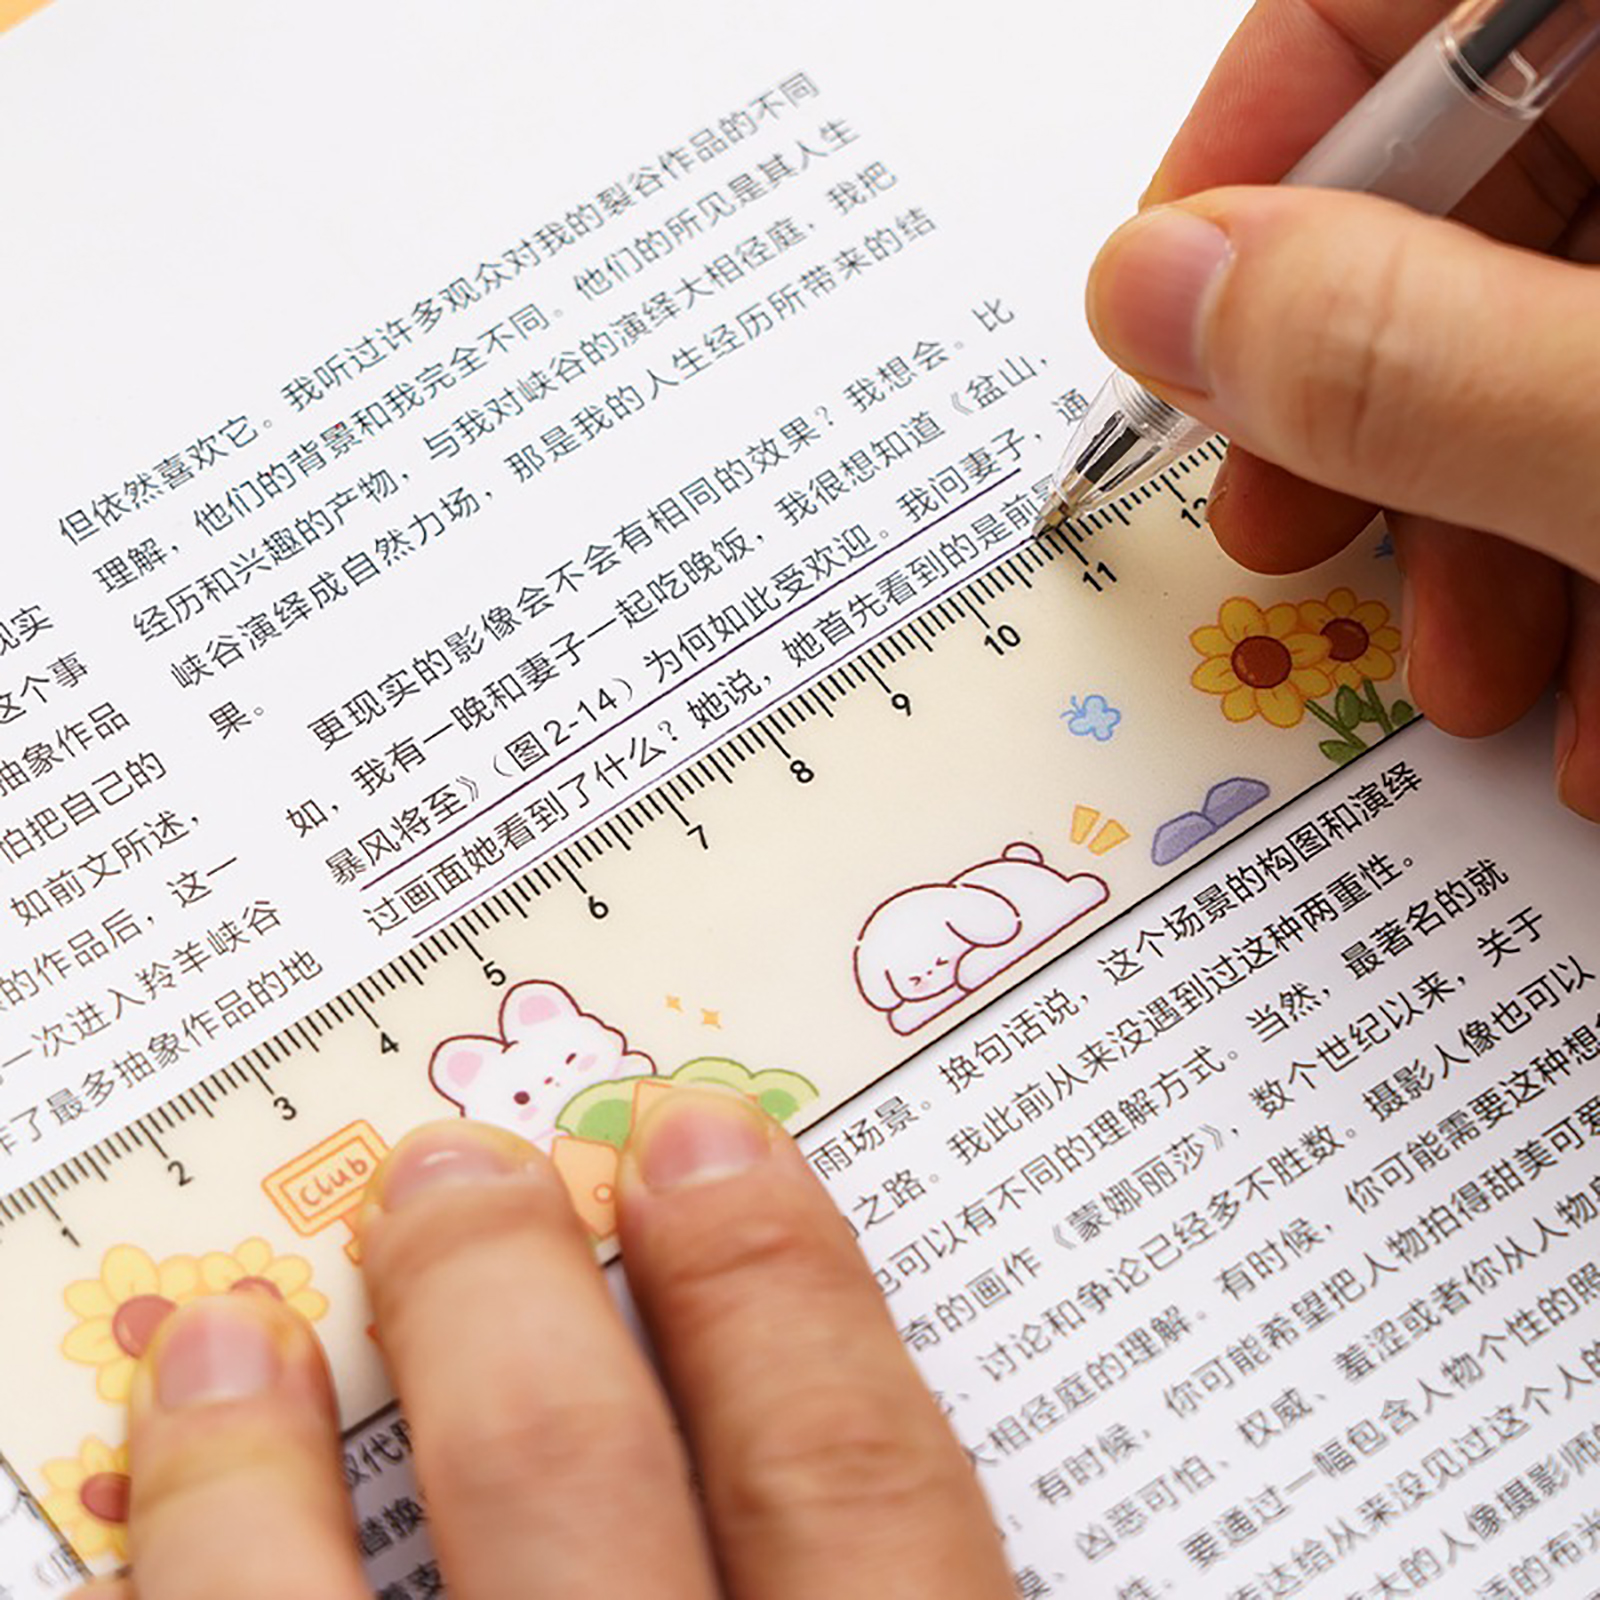 但依然喜欢它。我听过许多观众对我的裂谷作品的不同
理解，他们的背景和我完全不同。他们的所见是其人生
经历和兴趣的产物，与我对峡谷的演绎大相径庭，我把
峡谷演绎成自然力场，那是我的人生经历所带来的结
果。
更现实的影像会不会有相同的效果？我想会。比
如，我有一晚和妻子一起吃晚饭，我很想知道《盆山，
暴风将至》（图2-14）为何如此受欢迎。我问妻子，通
过画面她看到了什么？她说，她首先看到的是前
现实
这个事
抽象作品
怕把自己的
如前文所述，
的作品后，这一
一次进入羚羊峡谷
作了最多抽象作品的地
1 2 3 4 5 6 7 8 9 10 11 12
Club
这个场景的构图和演绎
雨场景。换句话说，
之路。我此前从来没遇到过这种两重性。
可以有不同的理解方式。当然，最著名的就
奇的画作《蒙娜丽莎》，数个世纪以来，关于
、讨论和争论已经多不胜数。摄影人像也可以
大相径庭的理解。有时候，你可能需要这种想
有时候，你可能希望把人物拍得甜美可爱
凶恶可怕、权威、羞涩或者你从人物
性，要通过一幅包含人物个性的照
达给从来没见过这个人的
大的人像摄影师
的布光
取代
替换